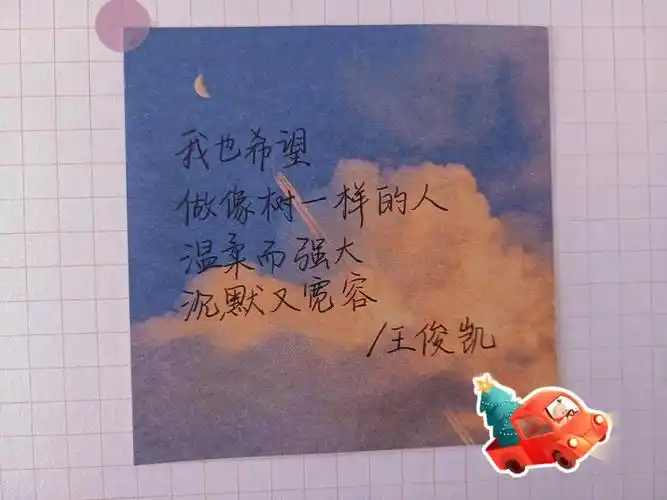 我也希望
做像树一样的人
温柔而强大
沉默又宽容
/王俊凯